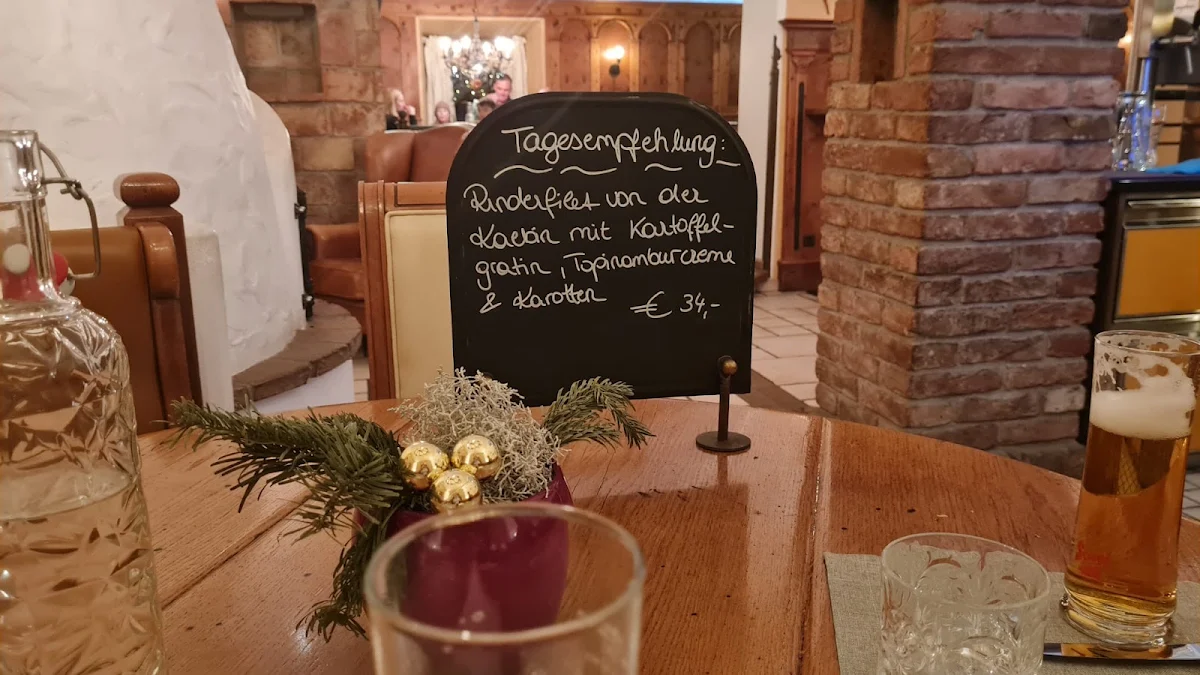 Tagesempfehlung:
Rinderfilet von der
Färsin mit Kartoffel-
gratin, Topinamburcreme
& Karotten € 34,-